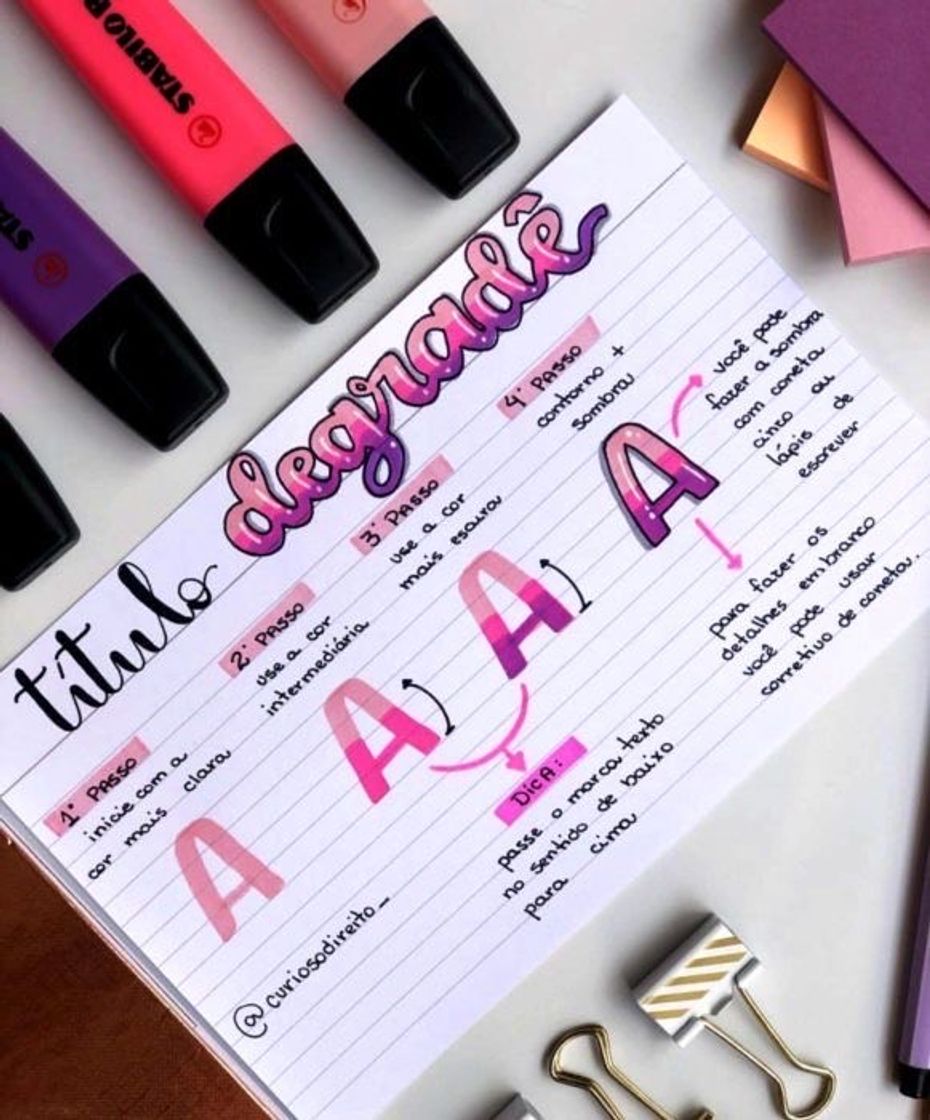 STABILO B
STABILO
título degradê
1° PASSO
inicie com a
cor mais clara
2° PASSO
use a cor
intermediária
3° PASSO
use a cor
mais escura
4° PASSO
contorno +
sombra
você pode
fazer a sombra
com caneta
cinza ou
lápis de
escrever
para fazer os
detalhes em branco
você pode usar
corretivo de caneta.
A
A
A
A
DICA:
passe o marca texto
no sentido de baixo
para cima
@curiosodireito_